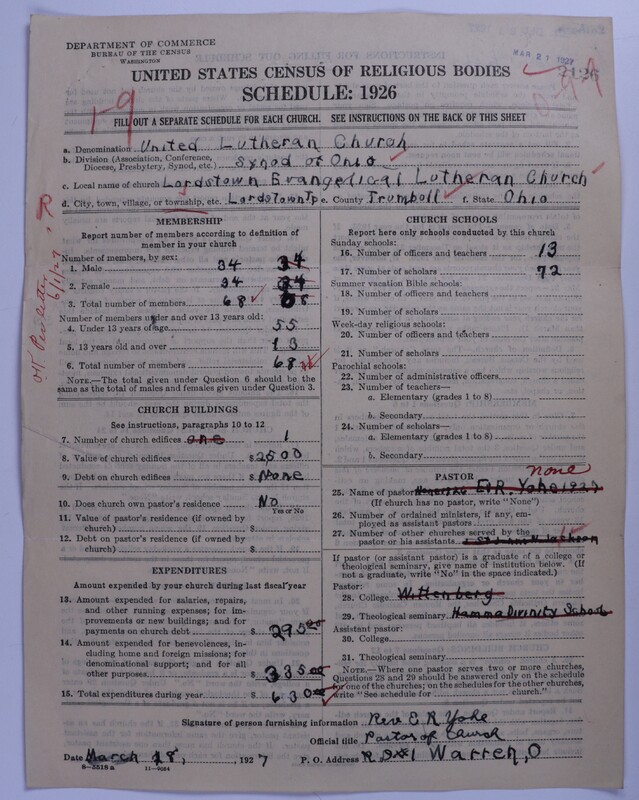 DEPARTMENT OF COMMERCE
BUREAU OF THE CENSUS
WASHINGTON
MAR 21 1927
UNITED STATES CENSUS OF RELIGIOUS BODIES
SCHEDULE: 1926
1-9
FILL OUT A SEPARATE SCHEDULE FOR EACH CHURCH. SEE INSTRUCTIONS ON THE BACK OF THIS SHEET
a. Denomination United Lutheran Church
b. Division (Association, Conference, Diocese, Presbytery, Synod, etc.) Synod of Ohio
c. Local name of church Lordstown Evangelical Lutheran Church
d. City, town, village, or township, etc. Lordstown Tp e. County Trumbull f. State Ohio
MEMBERSHIP
Report number of members according to definition of
member in your church
Number of members, by sex:
1. Male 34 34
2. Female 34 34
3. Total number of members 68 68
Number of members under and over 13 years old:
4. Under 13 years of age 55
5. 13 years old and over 13
6. Total number of members 68
NOTE.—The total given under Question 6 should be
same as the total of males and females given under Question 3.
CHURCH BUILDINGS
See instructions, paragraphs 10 to 12
7. Number of church edifices one 1
8. Value of church edifices $2500
9. Debt on church edifices $None
10. Does church own pastor's residence? No
Yes or No
11. Value of pastor's residence (if owned by
church) $
12. Debt on pastor's residence (if owned by
church) $
EXPENDITURES
Amount expended by your church during last fiscal year
13. Amount expended for salaries, repairs,
and other running expenses; for im-
provements or new buildings; and for
payments on church debt $295.00
14. Amount expended for benevolences, in-
cluding home and foreign missions; for
denominational support; and for all
other purposes $335.00
15. Total expenditures during year $630.00
CHURCH SCHOOLS
Report here only schools conducted by this church
Sunday schools:
16. Number of officers and teachers 13
17. Number of scholars 72
Summer vacation Bible schools:
18. Number of officers and teachers
19. Number of scholars
Week-day religious schools:
20. Number of officers and teachers
21. Number of scholars
Parochial schools:
22. Number of administrative officers
23. Number of teachers—
a. Elementary (grades 1 to 8)
b. Secondary
24. Number of scholars—
a. Elementary (grades 1 to 8)
b. Secondary
PASTOR
none
25. Name of pastor None 1926 E R. Yohe 1927
(If church has no pastor, write "None")
26. Number of ordained ministers, if any, em-
ployed as assistant pastors
27. Number of other churches served by the
pastor or his assistants St John N. Jackson
If pastor (or assistant pastor) is a graduate of a college or
theological seminary, give name of institution below. (If
not a graduate, write "No" in the space indicated.)
Pastor:
28. College Wittenberg
29. Theological seminary Hamma Divinity School
Assistant pastor:
30. College
31. Theological seminary
NOTE.—Where one pastor serves two or more churches,
Questions 28 and 29 should be answered only on the schedule
for one of the churches; on the schedules for the other churches,
write "See schedule for church."
Signature of person furnishing information Rev. E R Yohe
Official title Pastor of Church
Date March 18, 1927 P. O. Address R D #1 Warren, O
8—5518 a 11—9084